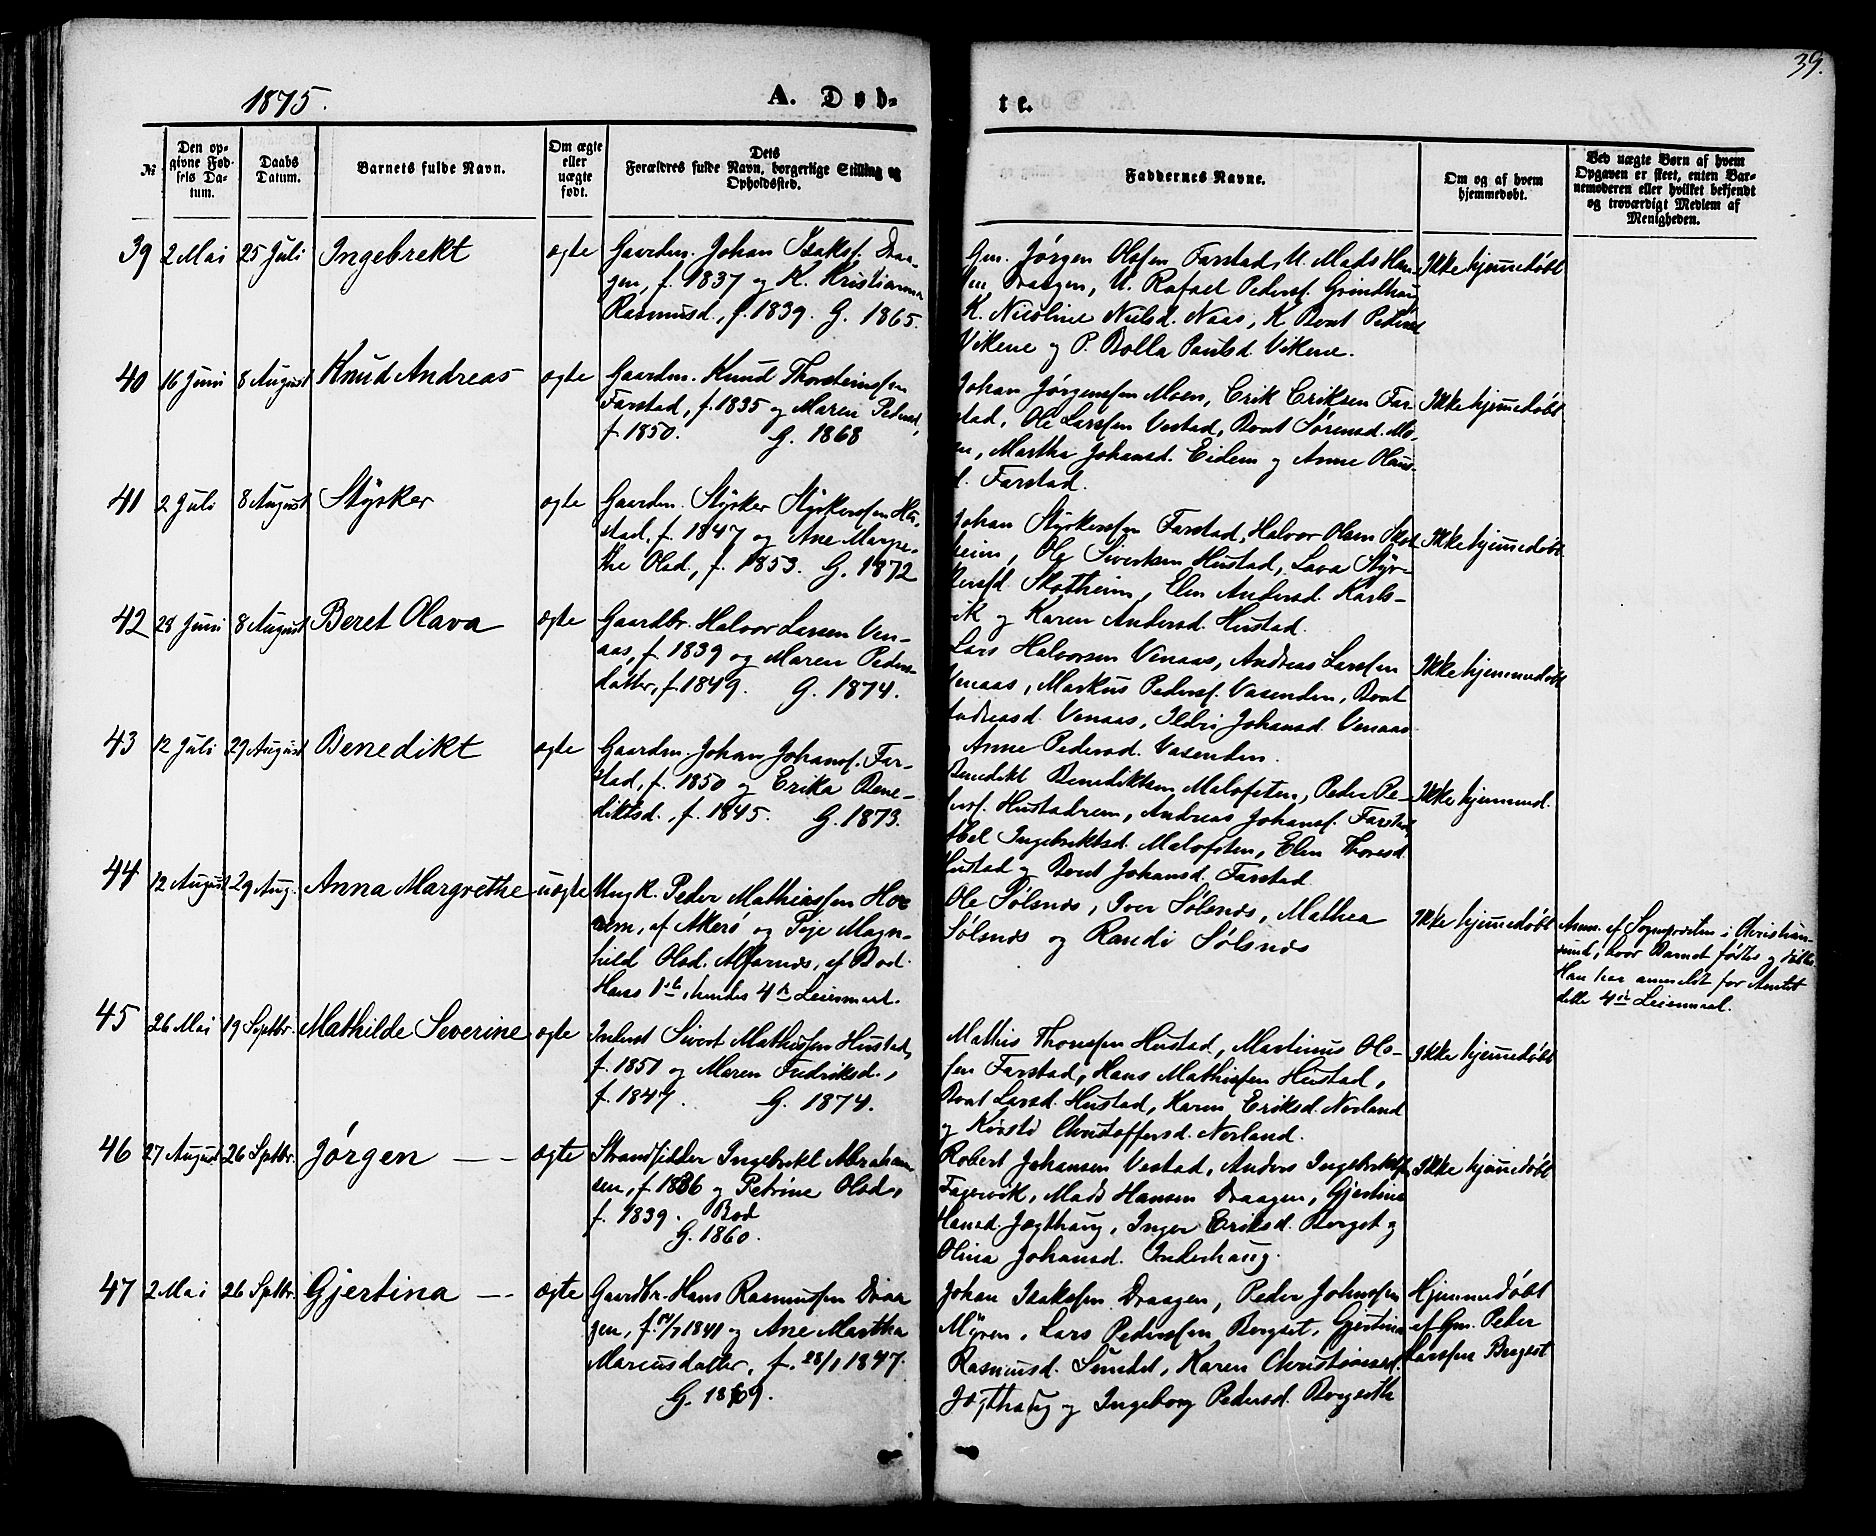 39.
1875.
A. Døb-
te.
№
Den op-
givne Fød-
sels Da-
tum.
Daabs
Datum.
Barnets fulde Navn.
Om ægte
eller
uægte
født.
Dets
Forældres fulde Navn, borgerlige Stilling og
Opholdssted.
Faddernes Navne.
Om og af hvem
hjemmedøbt.
Ved uægte Børn af hvem
Opgaven er skeet, enten Bar-
nemoderen eller hvilket bekjendt
og troværdigt Medlem af
Menigheden.
39 2 Mai 25 Juli Ingebrekt ægte
Gaardm. Johan Isaks. Draa-
gen, f. 1837 og K. Kristianna
Rasmusd., f. 1839. G. 1865.
Gm. Jørgen Olsen Farstad, U. Mads Han-
sen Draagen, U. Rafael Peders. Grindhaug
K. Nicoline Nielsd. Naas, K. Beret Pedersd
Vikene og P. Bolla Paulsd. Vikene.
Ikke hjemmedøbt
40 16 Juni 8 August Knud Andreas ægte
Gaardm. Knud Thorsteinssen
Farstad, f. 1835 og Maren Pedersd,
f. 1850. G. 1868
Johan Jørgenssen Moen, Erik Eriksen Far-
stad, Ole Larssen Vestad, Beret Sørensd. Mo-
en, Martha Johansd. Eidem og Anne Hans-
d. Farstad.
Ikke hjemmedøbt
41 2 Juli 8 August Styrker ægte
Gaardm. Styrker Styrkerssen Hu-
stad, f. 1847 og Ane Marge-
the Olsd., f. 1853. G. 1872
Johan Styrkerssen Farstad, Halvor Olsen Skot
heim, Ole Sivertsen Hustad, Lava Styr-
kersd. Skotheim, Elen Andersd. Karls-
vik og Karen Andersd. Hustad.
Ikke hjemmedøbt
42 28 Juni 8 August Beret Olava ægte
Gaardbr. Halvor Larsen Ven-
aas, f. 1839 og Maren Peders-
datter, f. 1849. G. 1874.
Lars Halvorsen Venaas, Andreas Larssen
Venaas, Markus Peders. Vasenden, Beret
Andreasd. Venaas, Ildri Johansd. Venaas
og Anne Pedersd. Vasenden.
Ikke hjemmedøbt
43 12 Juli 29 August Benedikt ægte
Gaardm. Johan Johans. Far-
stad, f. 1850 og Erika Bene-
diktsd., f. 1845. G. 1873.
Benedikt Benediktsen Malefeten, Peder Pe-
ders. Hustadrem, Andreas Johans. Farstad,
Abel Ingebriktsd. Malefeten, Elen Thoresd.
Hustad og Beret Johansd. Farstad
Ikke hjemmed.
44 12 August 29 Aug. Anna Margrethe uægte
Ungk. Peder Mathiassen Hor
nem, af Akerø og Pige Magn-
hild Olsd. Alfarnæs, af Bod.
Hans 1ste, hendes 4de Leiermaal.
Ole Sølsnæs, Iver Sølsnæs, Mathea
Sølsnæs og Randi Sølsnæs
Ikke hjemmedøbt
Anm. af Sognepræsten i Christian-
sund, hvor Barnet fødtes og
Han har anmeldt for Amtet
dette 4de Leiermaal.
45 26 Mai 19 Septbr. Mathilde Severine ægte
Inderst Sivert Mathissen Hustad,
f. 1851 og Maren Fredriksd.,
f. 1847. G. 1874.
Mathis Thoressen Hustad, Martinus Ol-
sen Farstad, Hans Mathissen Hustad,
Beret Larsd. Hustad, Karen Eriksd. Norland
og Kirsti Christoffersd. Norland.
Ikke hjemmedøbt
46 27 August 26 Septbr. Jørgen — — ægte
Strandsidder Ingebrikt Abraham
sen, f. 1836 og Petrine Olsd.,
f. 1839. Bod
G. 1860.
Robert Johansen Vestad, Anders Ingebriktss.
Fagervik, Mads Hansen Draagen, Gjertine
Hansd. Jægthaug, Inger Eriksd. Berget og
Olina Johansd. Inderhaug.
Ikke hjemmedøbt
47 2 Mai 26 Septbr. Gjertina — — ægte
Gaardbr. Hans Rasmussen Draa
gen, f. 1841 og Ane Martha
Marcusdatter, f. 28/1 1847.
G. 1869.
Johan Isakssen Draagen, Peder Johnssen
Myren, Lars Pederssen Bergset, Gjertina
Rasmusd. Sundet, Karen Christiansd.
Jægthaug og Ingeborg Pedersd. Bergseth
Hjemmedøbt
af Gm. Peder
Larssen Bergset